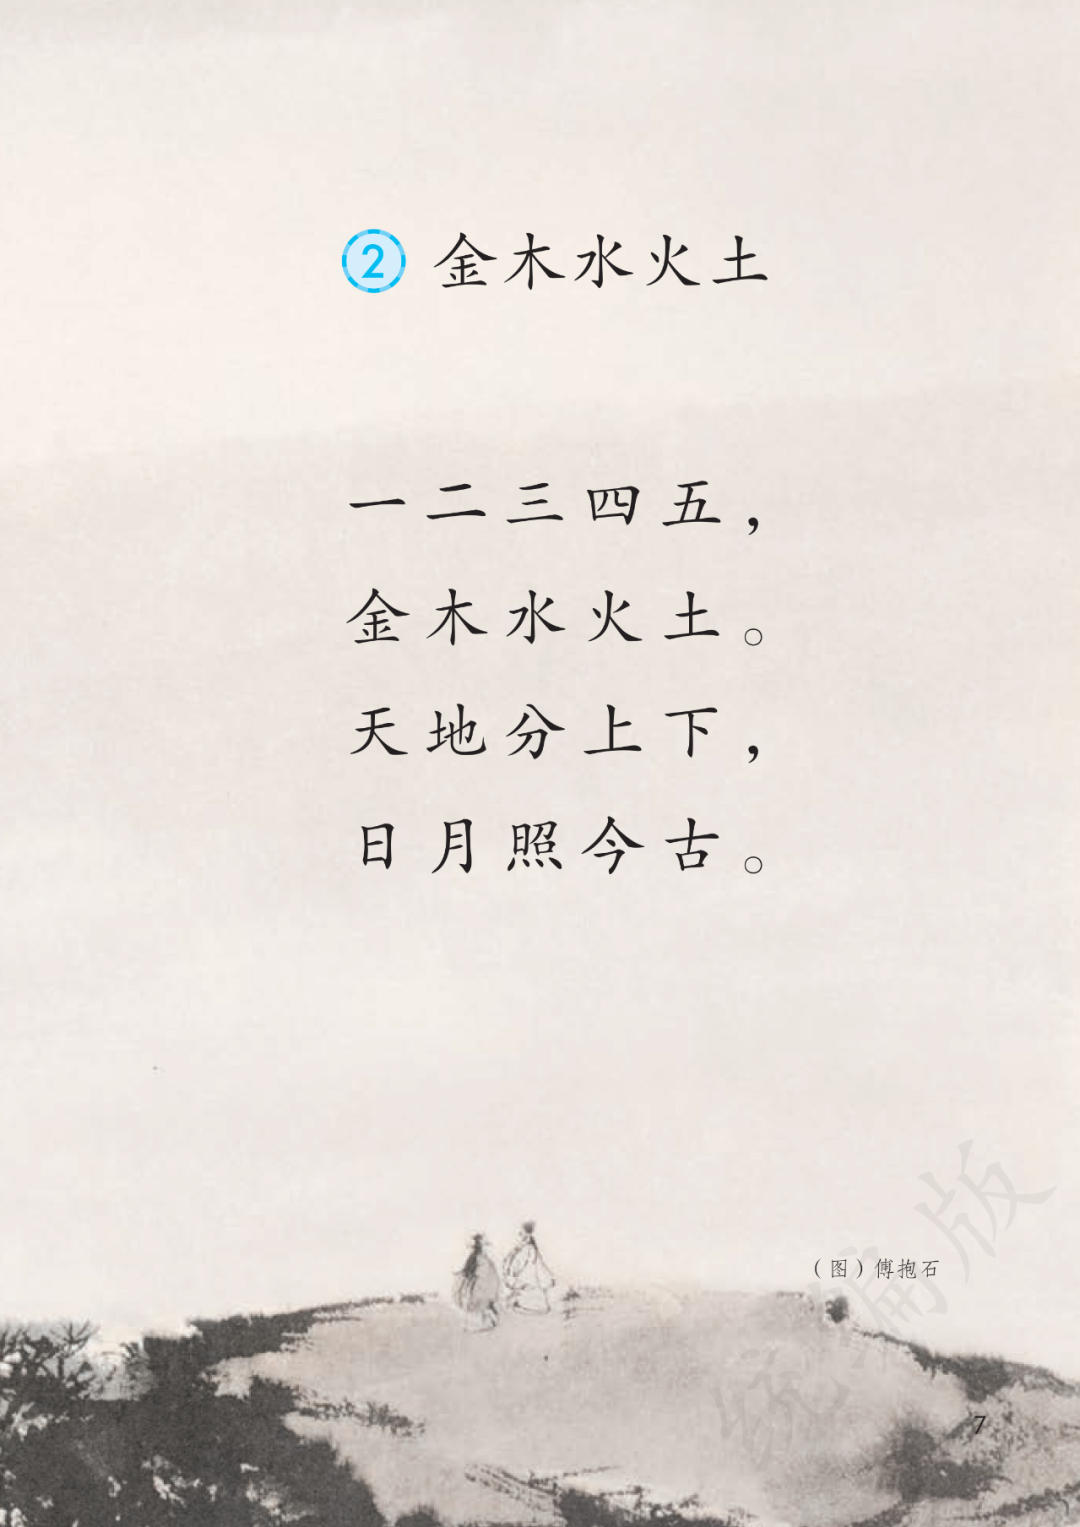 2 金木水火土
一二三四五，
金木水火土。
天地分上下，
日月照今古。
（图）傅抱石
统编版
7